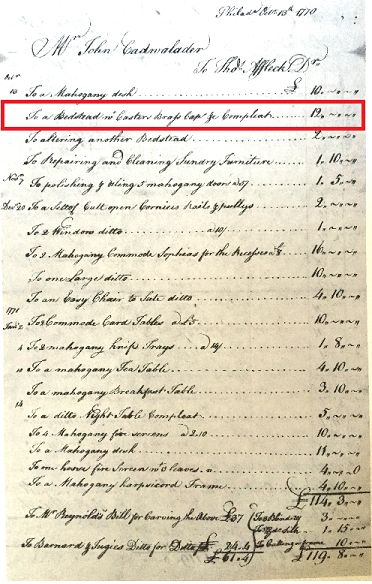 Philad. Octr. 13th 1770
Mr. John Cadwalader
To Thos. Affleck Dr.
Octr.
10 To a Mahogany desk £ 10 „ ~ „ ~
To a Bedstead wt. Castors Brass Caps &c Compleat 12 „ ~ „ ~
To altering another Bedstead 2 „ ~ „ ~
To Repairing and Cleaning Sundry Furniture 1 „ 10 „ ~
Novr. 7 To polishing & oiling 5 mahogany doors a 5/ 1 „ 5 „ ~
Decr. 20 To a Sett of Cutt open Cornices Rails & pullys 2 „ ~ „ ~
To 2 Window ditto a 10/ 1 „ ~ „ ~
To 2 Mahogany Commode Sophias for the Recesses 16 „ ~ „ ~
To one Large ditto 10 „ ~ „ ~
To an Easy Chair to Sute ditto 4 „ 10 „ ~
1771
To 2 Commode Card Tables a £5 10 „ ~ „ ~
4 To 2 mahogany knife Trays a 14/ 1 „ 8 „ ~
To a mahogany Tea Table 4 „ 10 „ ~
To a mahogany Breakfast Table 3 „ 10 „ ~
14
To a ditto Night Table Compleat 5 „ ~ „ ~
To 4 Mahogany fire screens a 2.10 10 „ ~ „ ~
To a Mahogany desk 11 „ ~ „ ~
To one horse fire Screen wt. 3 leaves 4 „ ~ „ 0
To a Mahogany harpsicord Frame 4 „ 10 „ ~
£114 „ 3 „ ~
To Mr. Reynold's Bill for Carving the Above £37
3 „ ~ „ ~
1 „ 15 „ ~
To Barnard & Jugies Ditto for Ditto 24.4
To Cutting a frame 10 „ ~
£61 „ 4
£119 „ 8 „ ~